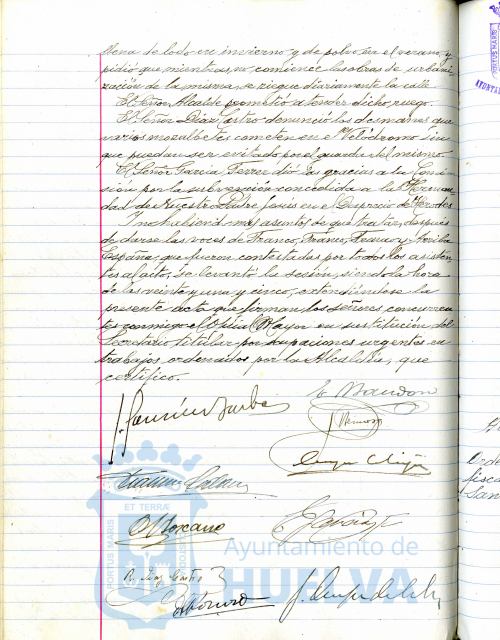 llena de lodo en invierno y de polvo en el verano, y
pidió que mientras no comience las obras de urbani-
zación de la misma, se riegue diariamente la calle.
El Señor Alcalde prometió atender dicho ruego.
El Señor Diaz Castro denunció los desmanes que
varios mozalbetes cometen en el Velódromo sin
que puedan ser evitado por el guarda del mismo.
El Señor Garcia Ferrer dió las gracias a la Comi-
sión por la subvención concedida a la Herman-
dad de Nuestro Padre Jesús en el Desprecio de Herodes
Y no habiendo mas asuntos de que tratar, después
de darse las voces de Franco, Franco, Franco y Arriba
España, que fueron contestadas por todos los asisten-
tes al acto, se levantó la sesión, siendo la hora
de las veinte y una y cinco, extendiéndose la
presente acta que firman los señores concurren-
tes conmigo el Oficial Mayor en sustitución del
Secretario titular por ocupaciones urgentes en
trabajos ordenados por la Alcaldia, que
certifico.
PORTUS MARIS
ET TERRÆ
Ayuntamiento de
HUELVA